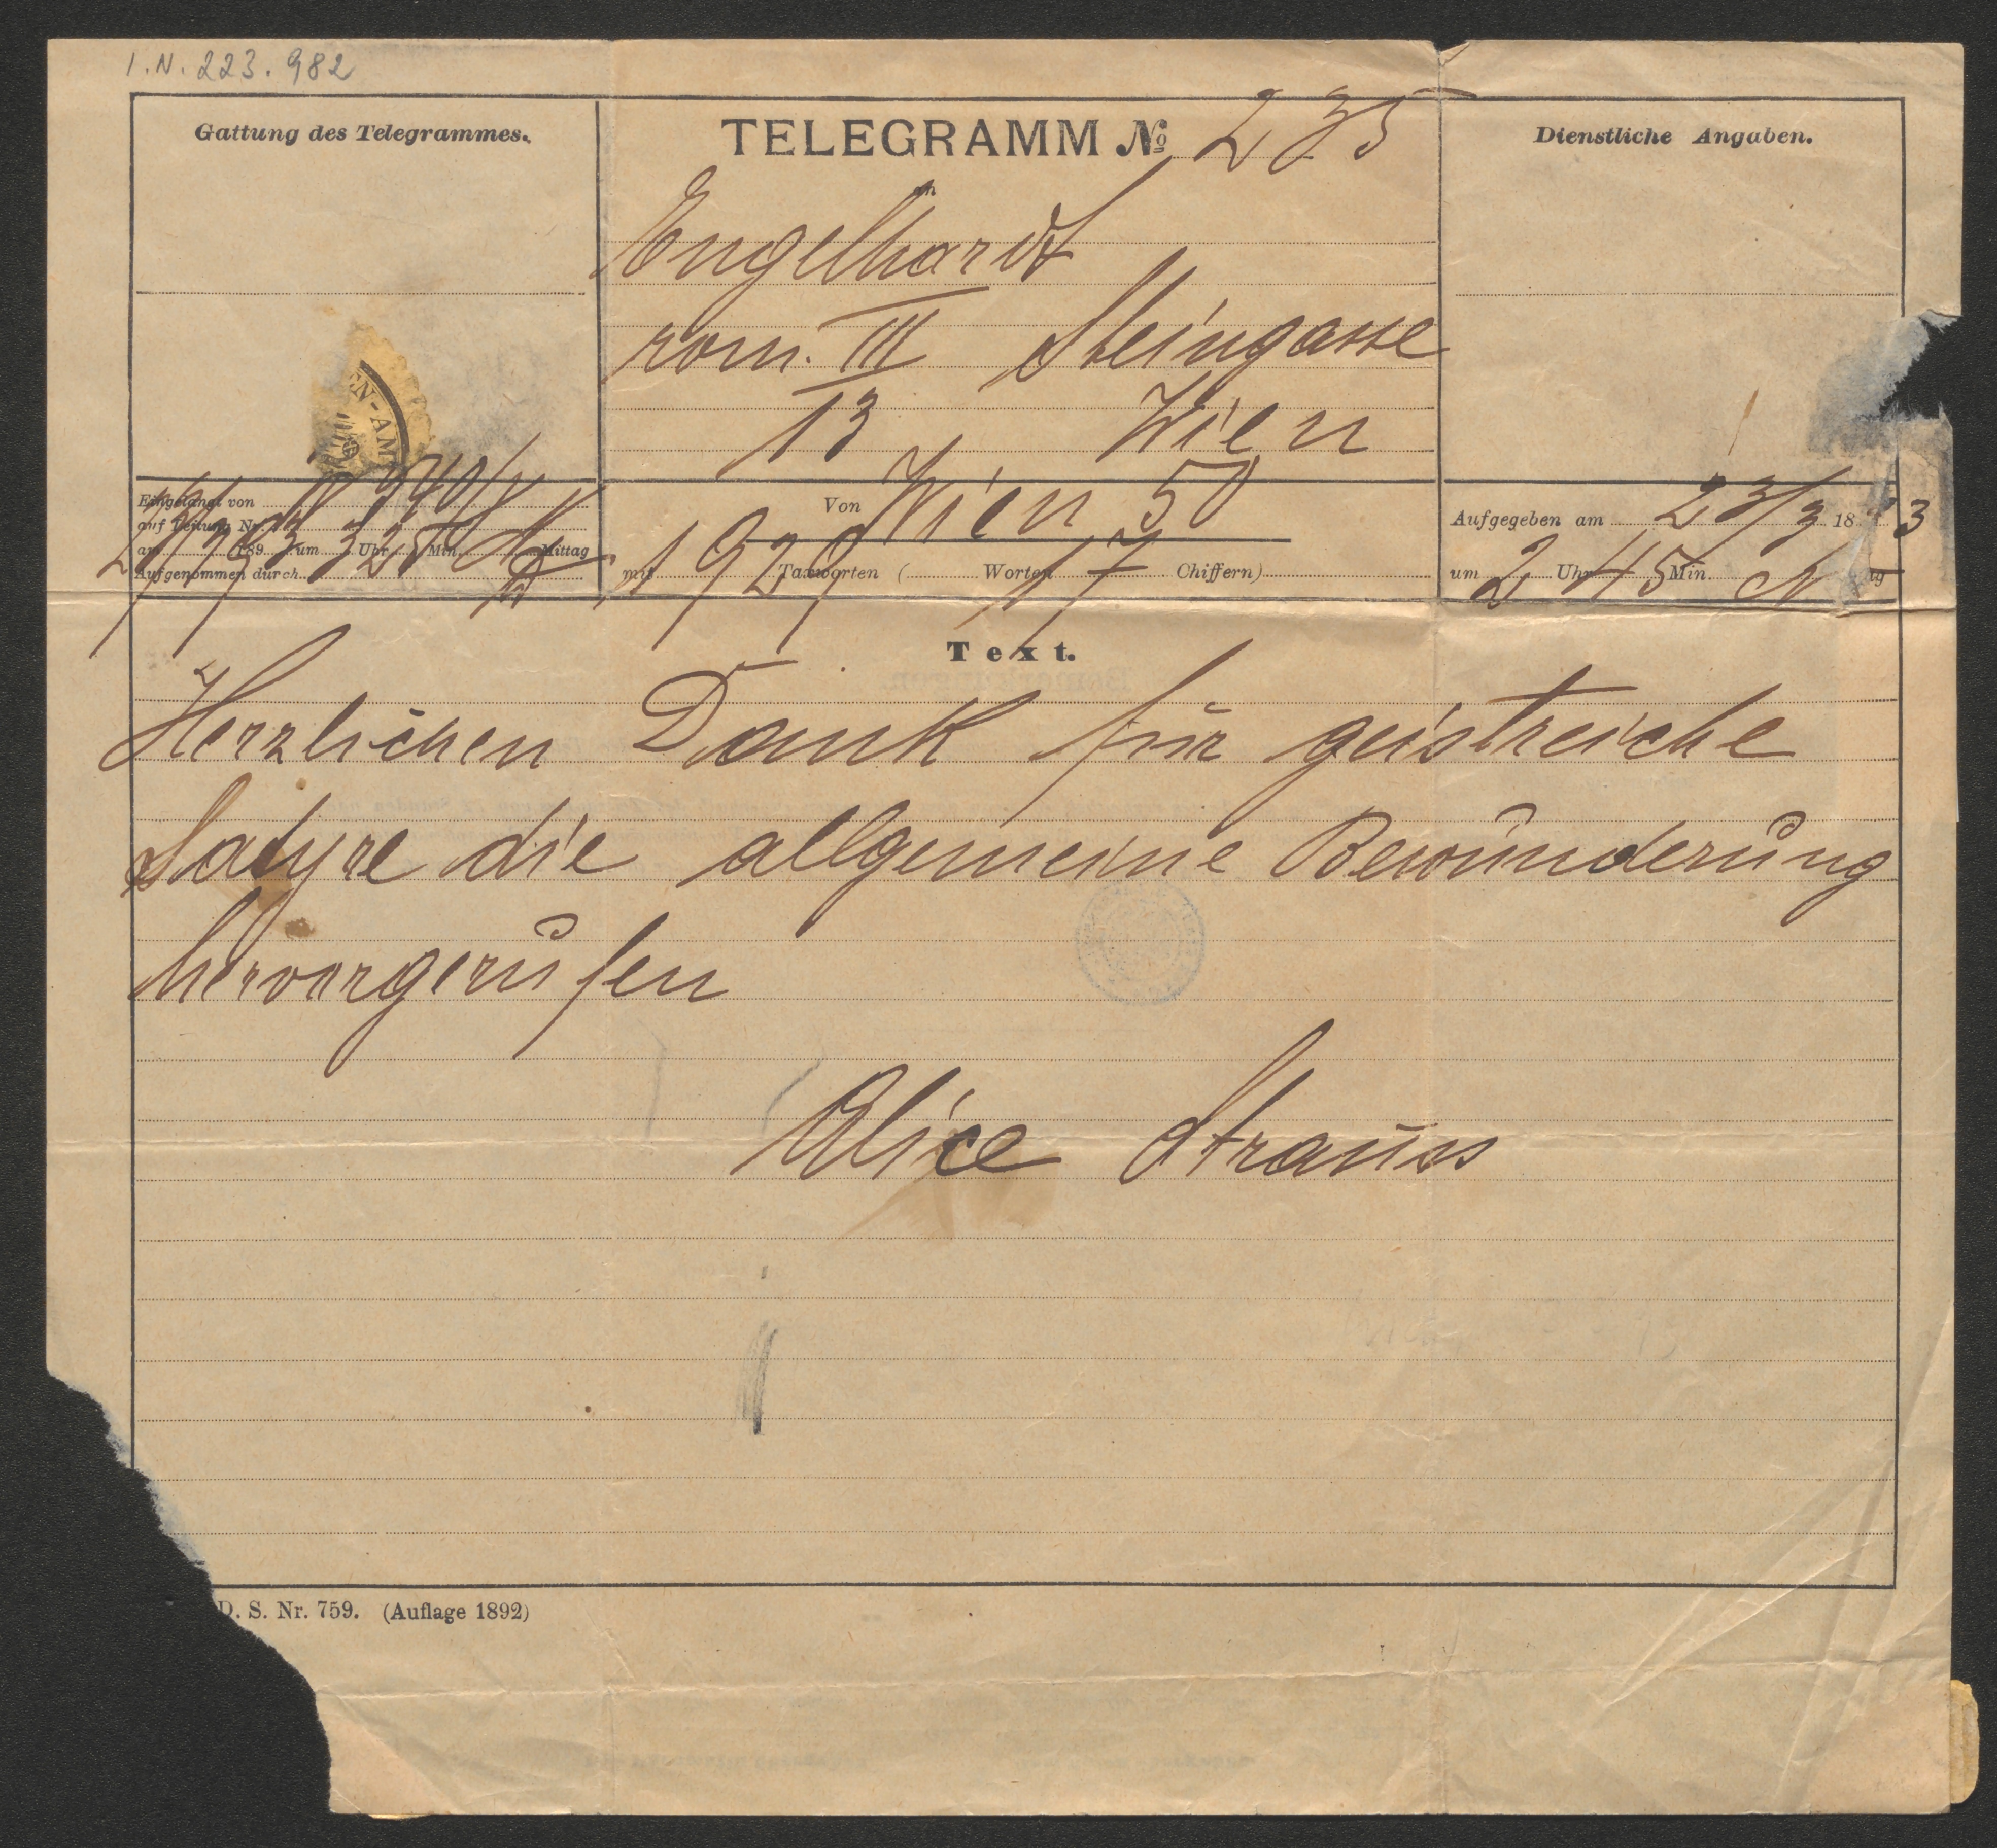 I. N. 223.982
Gattung des Telegrammes.
TELEGRAMM № 235
Dienstliche Angaben.
an
Engelhardt
rom. III Steingasse
13 Wien
EN-AM
Eingelangt von
auf Leitung Nr.
am 189 3 um 3 Uhr 25 Min. Mittag
Aufgenommen durch
Von Wien 50
mit 1929 Taxworten ( Worten 17 Chiffern)
Aufgegeben am 23/3 18 3
um 2 Uhr 45 Min. N tg
Text.
Herzlichen Dank für geistreiche
Satyre die allgemeine Bewunderung
hervorgerufen
Alice Strauss
D. S. Nr. 759. (Auflage 1892)